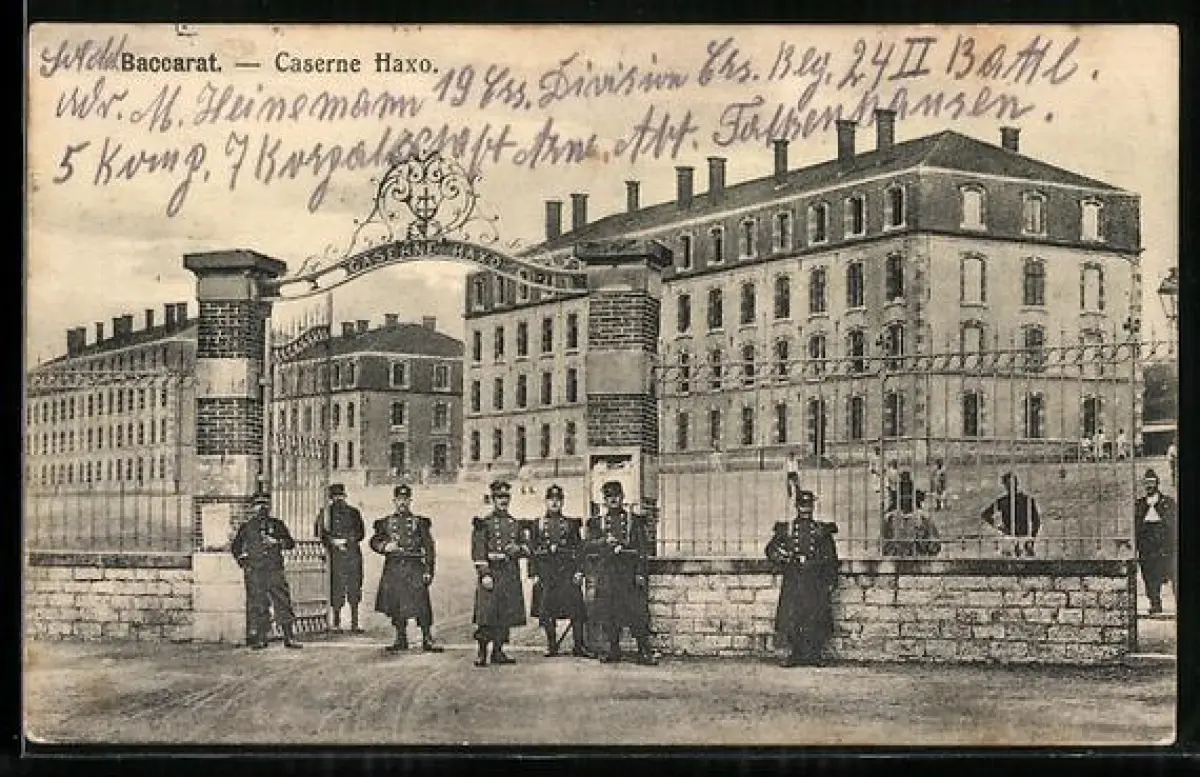 Sold. Baccarat. — Caserne Haxo. 19 Ers. Division Ers. Reg. 24 II Battl.
Adr. M. Heinemann
5 Komp. 7 Korp Arm. Abt. Falkenhausen.
CASERNE HAXO